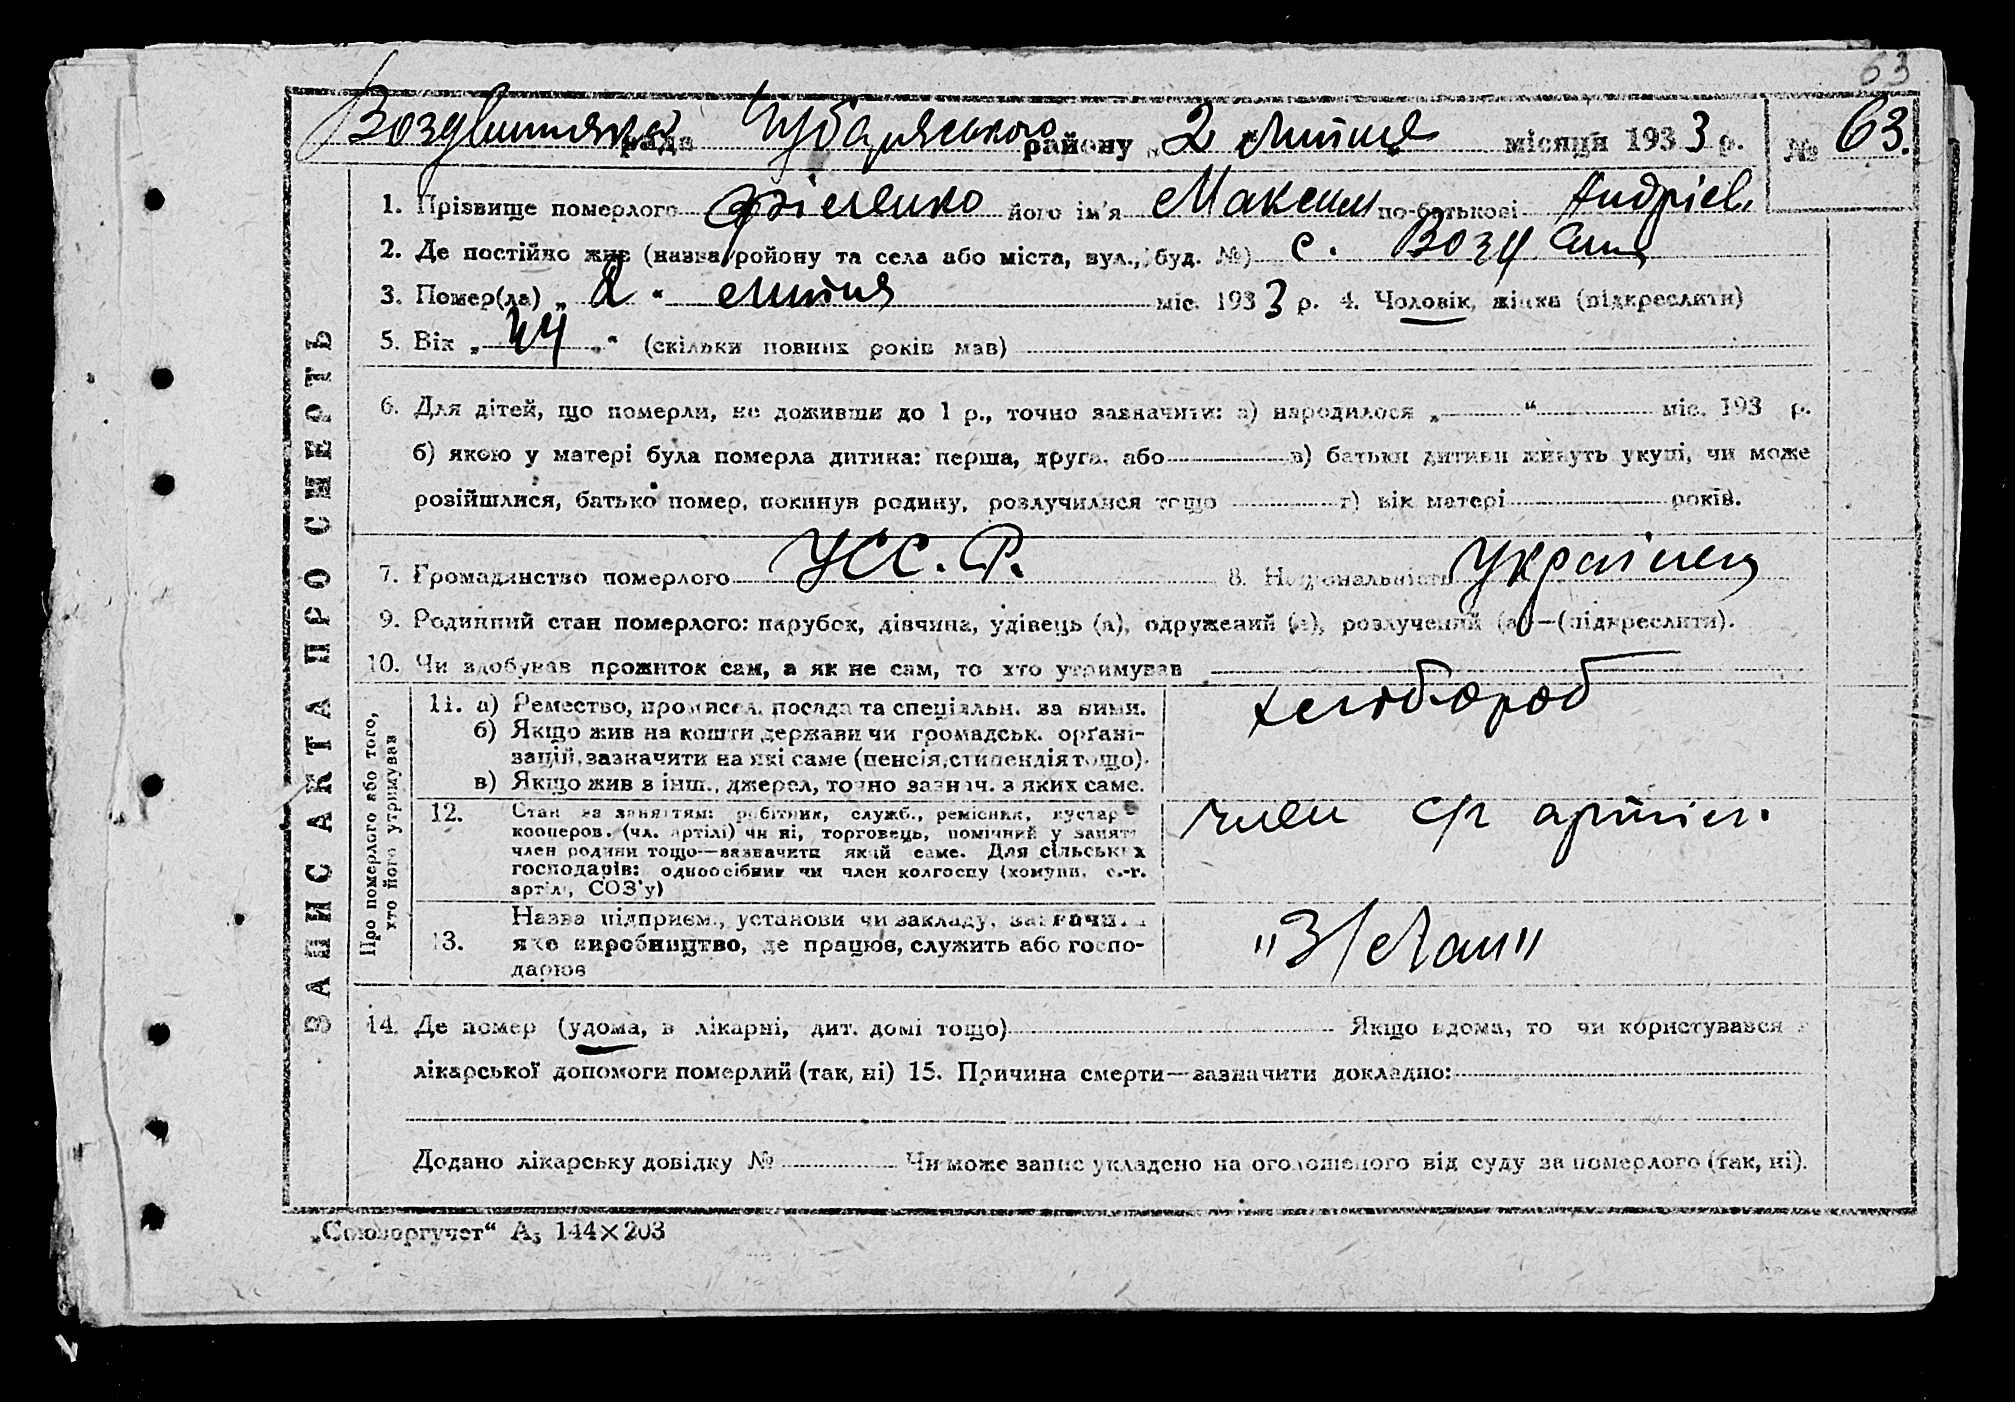 63
рада Чубарського району „ 2 липця місяця 1933 р. № 63.
1. Прізвище померлого Фісенко його ім'я Максим по-батькові Андрієв.
2. Де постійно жив (назва ройону та села або міста, вул., буд. №) с.
3. Помер(ла) „ 2 “ липня міс. 1933 р. 4. Чоловік, жінка (підкреслити)
5. Вік „ 44 “ (скільки повних років мав)
6. Для дітей, що померли, не доживши до 1 р., точно зазначити: а) народилося „ “ міс. 193 р.
б) якою у матері була померла дитина: перша, друга, або в) батьки дитини живуть укупі, чи може
розійшлися, батько помер, покинув родину, розлучилися тощо г) вік матері років.
7. Громадянство померлого УСС.Р. 8. Національність Українец
9. Родинний стан померлого: парубок, дівчина, удівець (а), одружений (а), розлучений (а)—(підкреслити).
10. Чи здобував прожиток сам, а як не сам, то хто утримував
ЗАПИС АКТА ПРО СМЕРТЬ
Про померлого або того,
хто його утримував
11. а) Ремество, промисел, посада та спеціяльн. за ними. хлібороб
б) Якщо жив на кошти держави чи громадськ. орґані-
зацій, зазначити на які саме (пенсія, стипендія тощо).
в) Якщо жив з інш., джерел, точно зазнач. з яких саме.
12. Стан за заняттям: робітник, служб., ремісник, кустар член с/г артіл.
кооперов. (чл. артілі) чи ні, торговець, помічний у занят.
член родини тощо—зазначити який саме. Для сільських
господарів: одноосібник чи член колгоспу (комуни, с.-г.
артілі, СОЗ'у)
Назва підприєм., установи чи закладу, зазначи.
13. яке виробництво, де працюв, служить або госпо-
дарюв
14. Де помер (удома, в лікарні, дит. домі тощо) Якщо вдома, то чи користувався з
лікарської допомоги померлий (так, ні) 15. Причина смерти—зазначити докладно:
Додано лікарську довідку № Чи може запис укладено на оголошеного від суду за померлого (так, ні).
„Союзоргучет“ А₅ 144×203